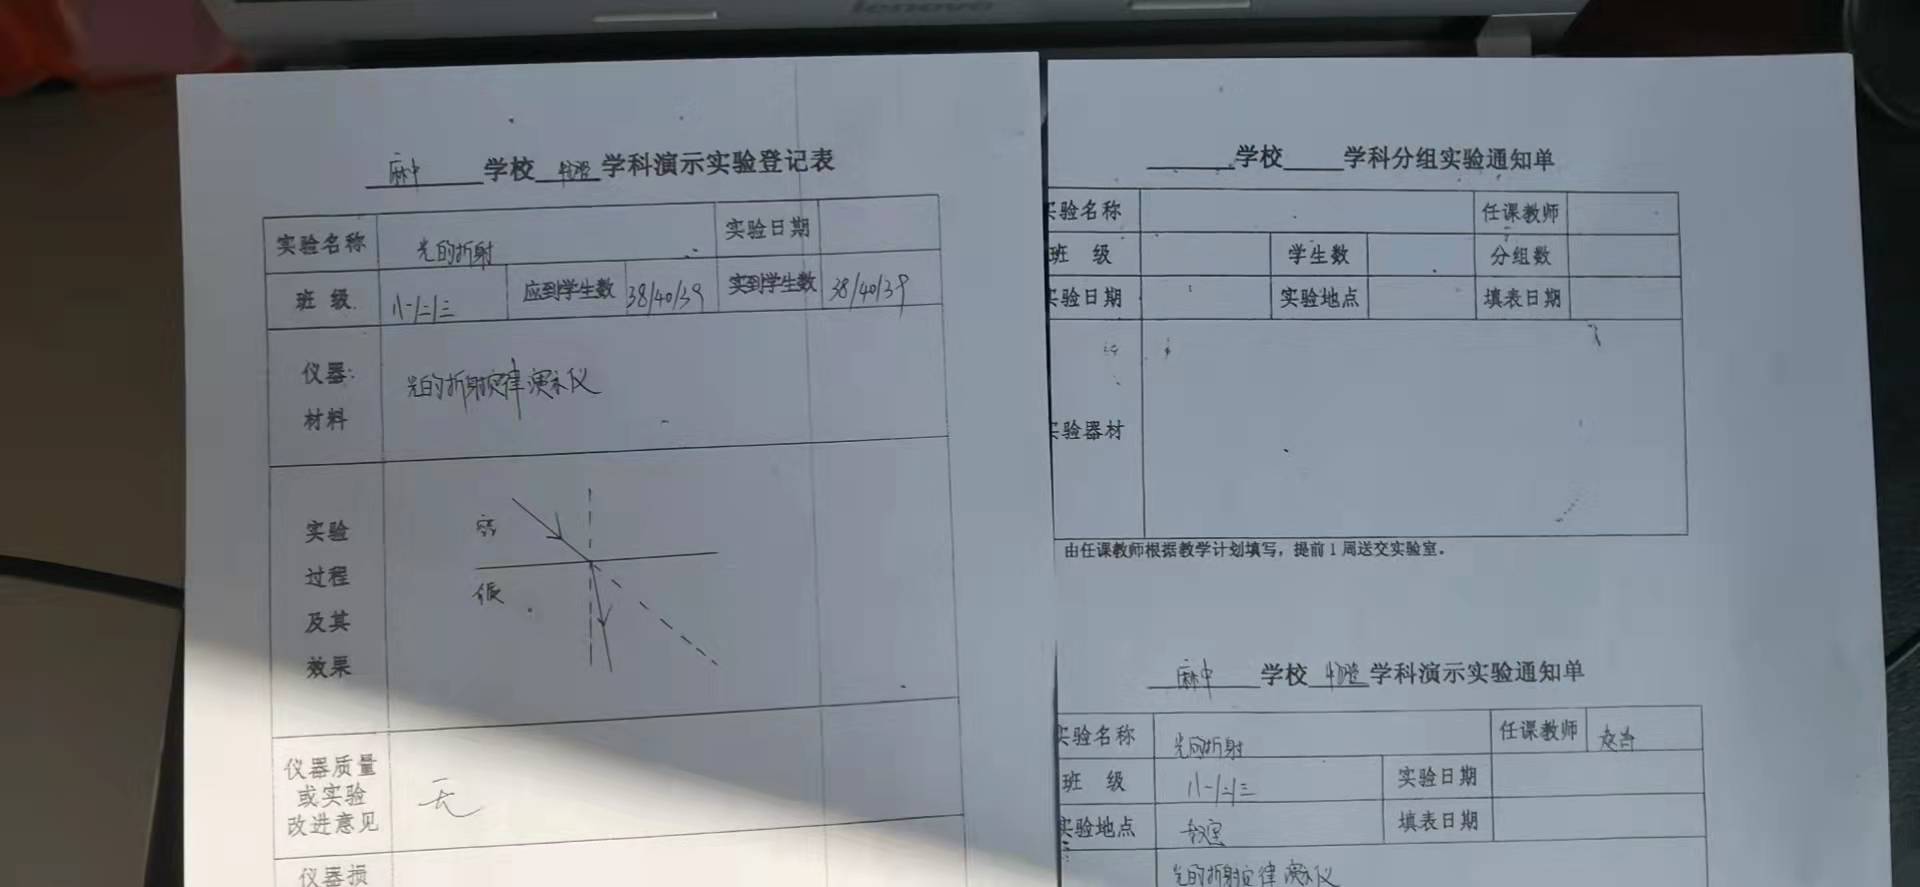 lenovo
麻中 学校 物理 学科演示实验登记表
实验名称 光的折射 实验日期
班 级 八一/二/三 应到学生数 38/40/39 实到学生数 38/40/39
仪器:
材料
光的折射定律演示仪
实验
过程
及其
效果
仪器质量
或实验
改进意见
无
仪器损
学校 学科分组实验通知单
实验名称 任课教师
班 级 学生数 分组数
实验日期 实验地点 填表日期
实验器材
由任课教师根据教学计划填写，提前1周送交实验室。
麻中 学校 物理 学科演示实验通知单
实验名称 光的折射 任课教师
班 级 八一/二/三 实验日期
实验地点 教室 填表日期
光的折射定律演示仪